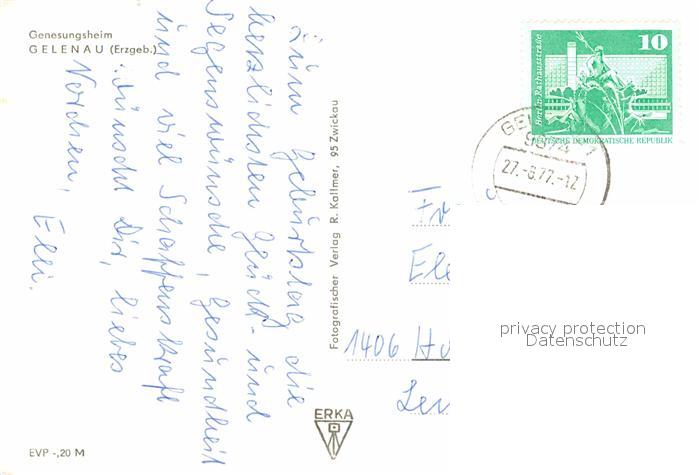 Genesungsheim
GELENAU (Erzgeb.)
Zum Geburtstag die
herzlichsten Glück- und
Segenswünsche, Gesundheit
und viel Schaffenskraft
wünscht Dir, liebes
Nordien, Elli.
Fotografischer Verlag R. Kallmer, 95 Zwickau
ERKA
EVP -,20 M
Berlin-Rathausstraße
10
DEUTSCHE DEMOKRATISCHE REPUBLIK
GEL
9374
27.-6.77.-12
Fr
Ele
1406 Ho
privacy protection
Datenschutz